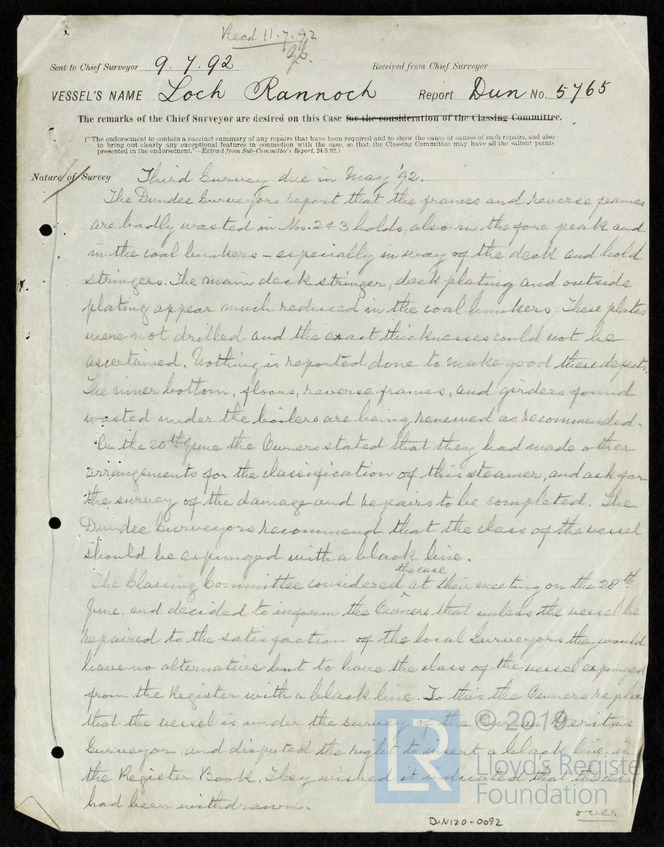 Recd 11.7.92
Sent to Chief Surveyor 9.7.92 Received from Chief Surveyor
VESSEL'S NAME Loch Rannoch Report Dun No. 5765
The remarks of the Chief Surveyor are desired on this Case for the consideration of the Classing Committee.
("The endorsement to contain a succinct summary of any repairs that have been required and to show the cause or causes of such repairs, and also
to bring out clearly any exceptional features in connection with the case, so that the Classing Committee may have all the salient points
presented in the endorsement."—Extract from Sub-Committee's Report, 24.5.92.)
Nature of Survey Third Survey due in May '92.
The Dundee Surveyors report that the frames and reverse frames
are badly wasted in Nos. 2 & 3 holds, also in the fore peak and
in the coal bunkers – especially in way of the deck and hold
stringers. The main deck stringer, deck plating and outside
plating appear much reduced in the coal bunkers. These plates
were not drilled and the exact thicknesses could not be
ascertained. Nothing is reported done to make good these defects.
The inner bottom, floors, reverse frames, and girders found
wasted under the boilers are being renewed as recommended.
On the 20th June the Owners stated that they had made other
arrangements for the classification of this steamer, and ask for
the survey of the damage and repairs to be completed. The
Dundee Surveyors recommend that the class of the vessel
should be expunged with a black line.
the case
The Classing Committee considered at their meeting on the 28th
June, and decided to inform the Owners that unless the vessel be
repaired to the satisfaction of the local Surveyors they would
have no alternative but to have the class of the vessel expunged
from the Register with a black line. To this the Owners replied
that the vessel is under the survey of the Bureau Veritas
Surveyor, and disputed the right to insert a black line in
the Register Book. They wished it indicated that the
had been withdrawn.
over
DUN120-0092
LR
© 2019
Lloyd's Register
Foundation